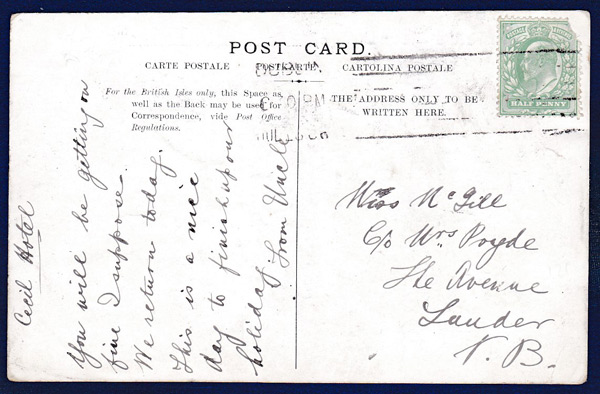 POST CARD.
CARTE POSTALE POSTKARTE CARTOLINA POSTALE
For the British Isles only, this Space as
well as the Back may be used for
Correspondence, vide Post Office
Regulations.
THE ADDRESS ONLY TO BE
WRITTEN HERE.
POSTAGE REVENUE
HALF PENNY
PM
Cecil Hotel
You will be getting on
fine I suppose.
We return today.
This is a nice
day to finish up our
holiday from Uncle
Miss McGill
C/o Mrs
The Avenue
Lauder
N.B.